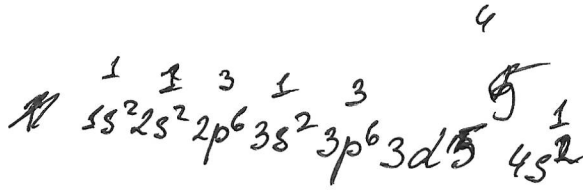 4
1 1 3 1 3 5 1
1s²2s²2p⁶3s²3p⁶3d5 4s²